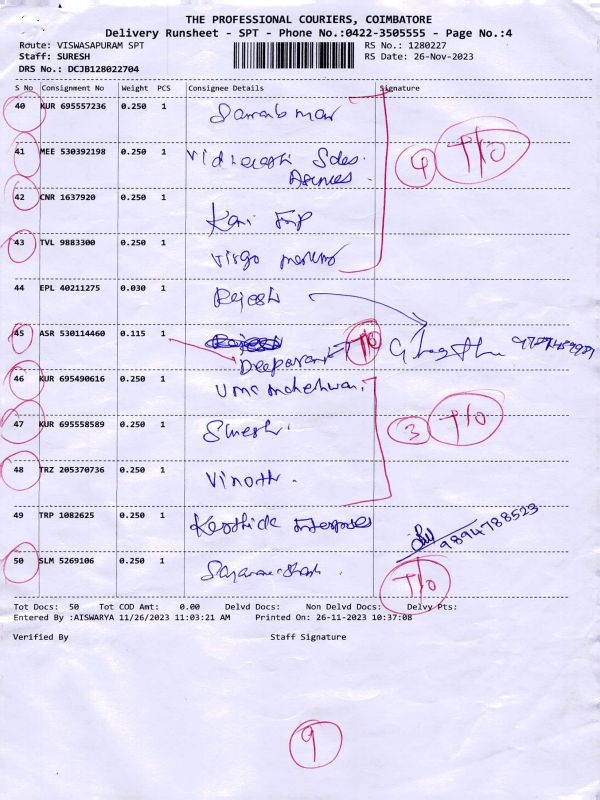 THE PROFESSIONAL COURIERS, COIMBATORE
Delivery Runsheet - SPT - Phone No.:0422-3505555 - Page No.:4
Route: VISWASAPURAM SPT RS No.: 1280227
Staff: SURESH RS Date: 26-Nov-2023
DRS No.: DCJB128022704
S No Consignment No Weight PCS Consignee Details Signature
40 KUR 695557236 0.250 1
41 MEE 530392198 0.250 1 Sales
4 T/O
42 CNR 1637920 0.250 1
43 TVL 9883300 0.250 1 Virgo
44 EPL 40211275 0.030 1 Rajesh
45 ASR 530114460 0.115 1 T/O
46 KUR 695490616 0.250 1 Uma
47 KUR 695558589 0.250 1 Suresh 3 T/O
48 TRZ 205370736 0.250 1 Vinoth.
49 TRP 1082625 0.250 1 9894788523
50 SLM 5269106 0.250 1 T/O
Tot Docs: 50 Tot COD Amt: 0.00 Delvd Docs: Non Delvd Docs: Delvy Pts:
Entered By :AISWARYA 11/26/2023 11:03:21 AM Printed On: 26-11-2023 10:37:08
Verified By Staff Signature
9